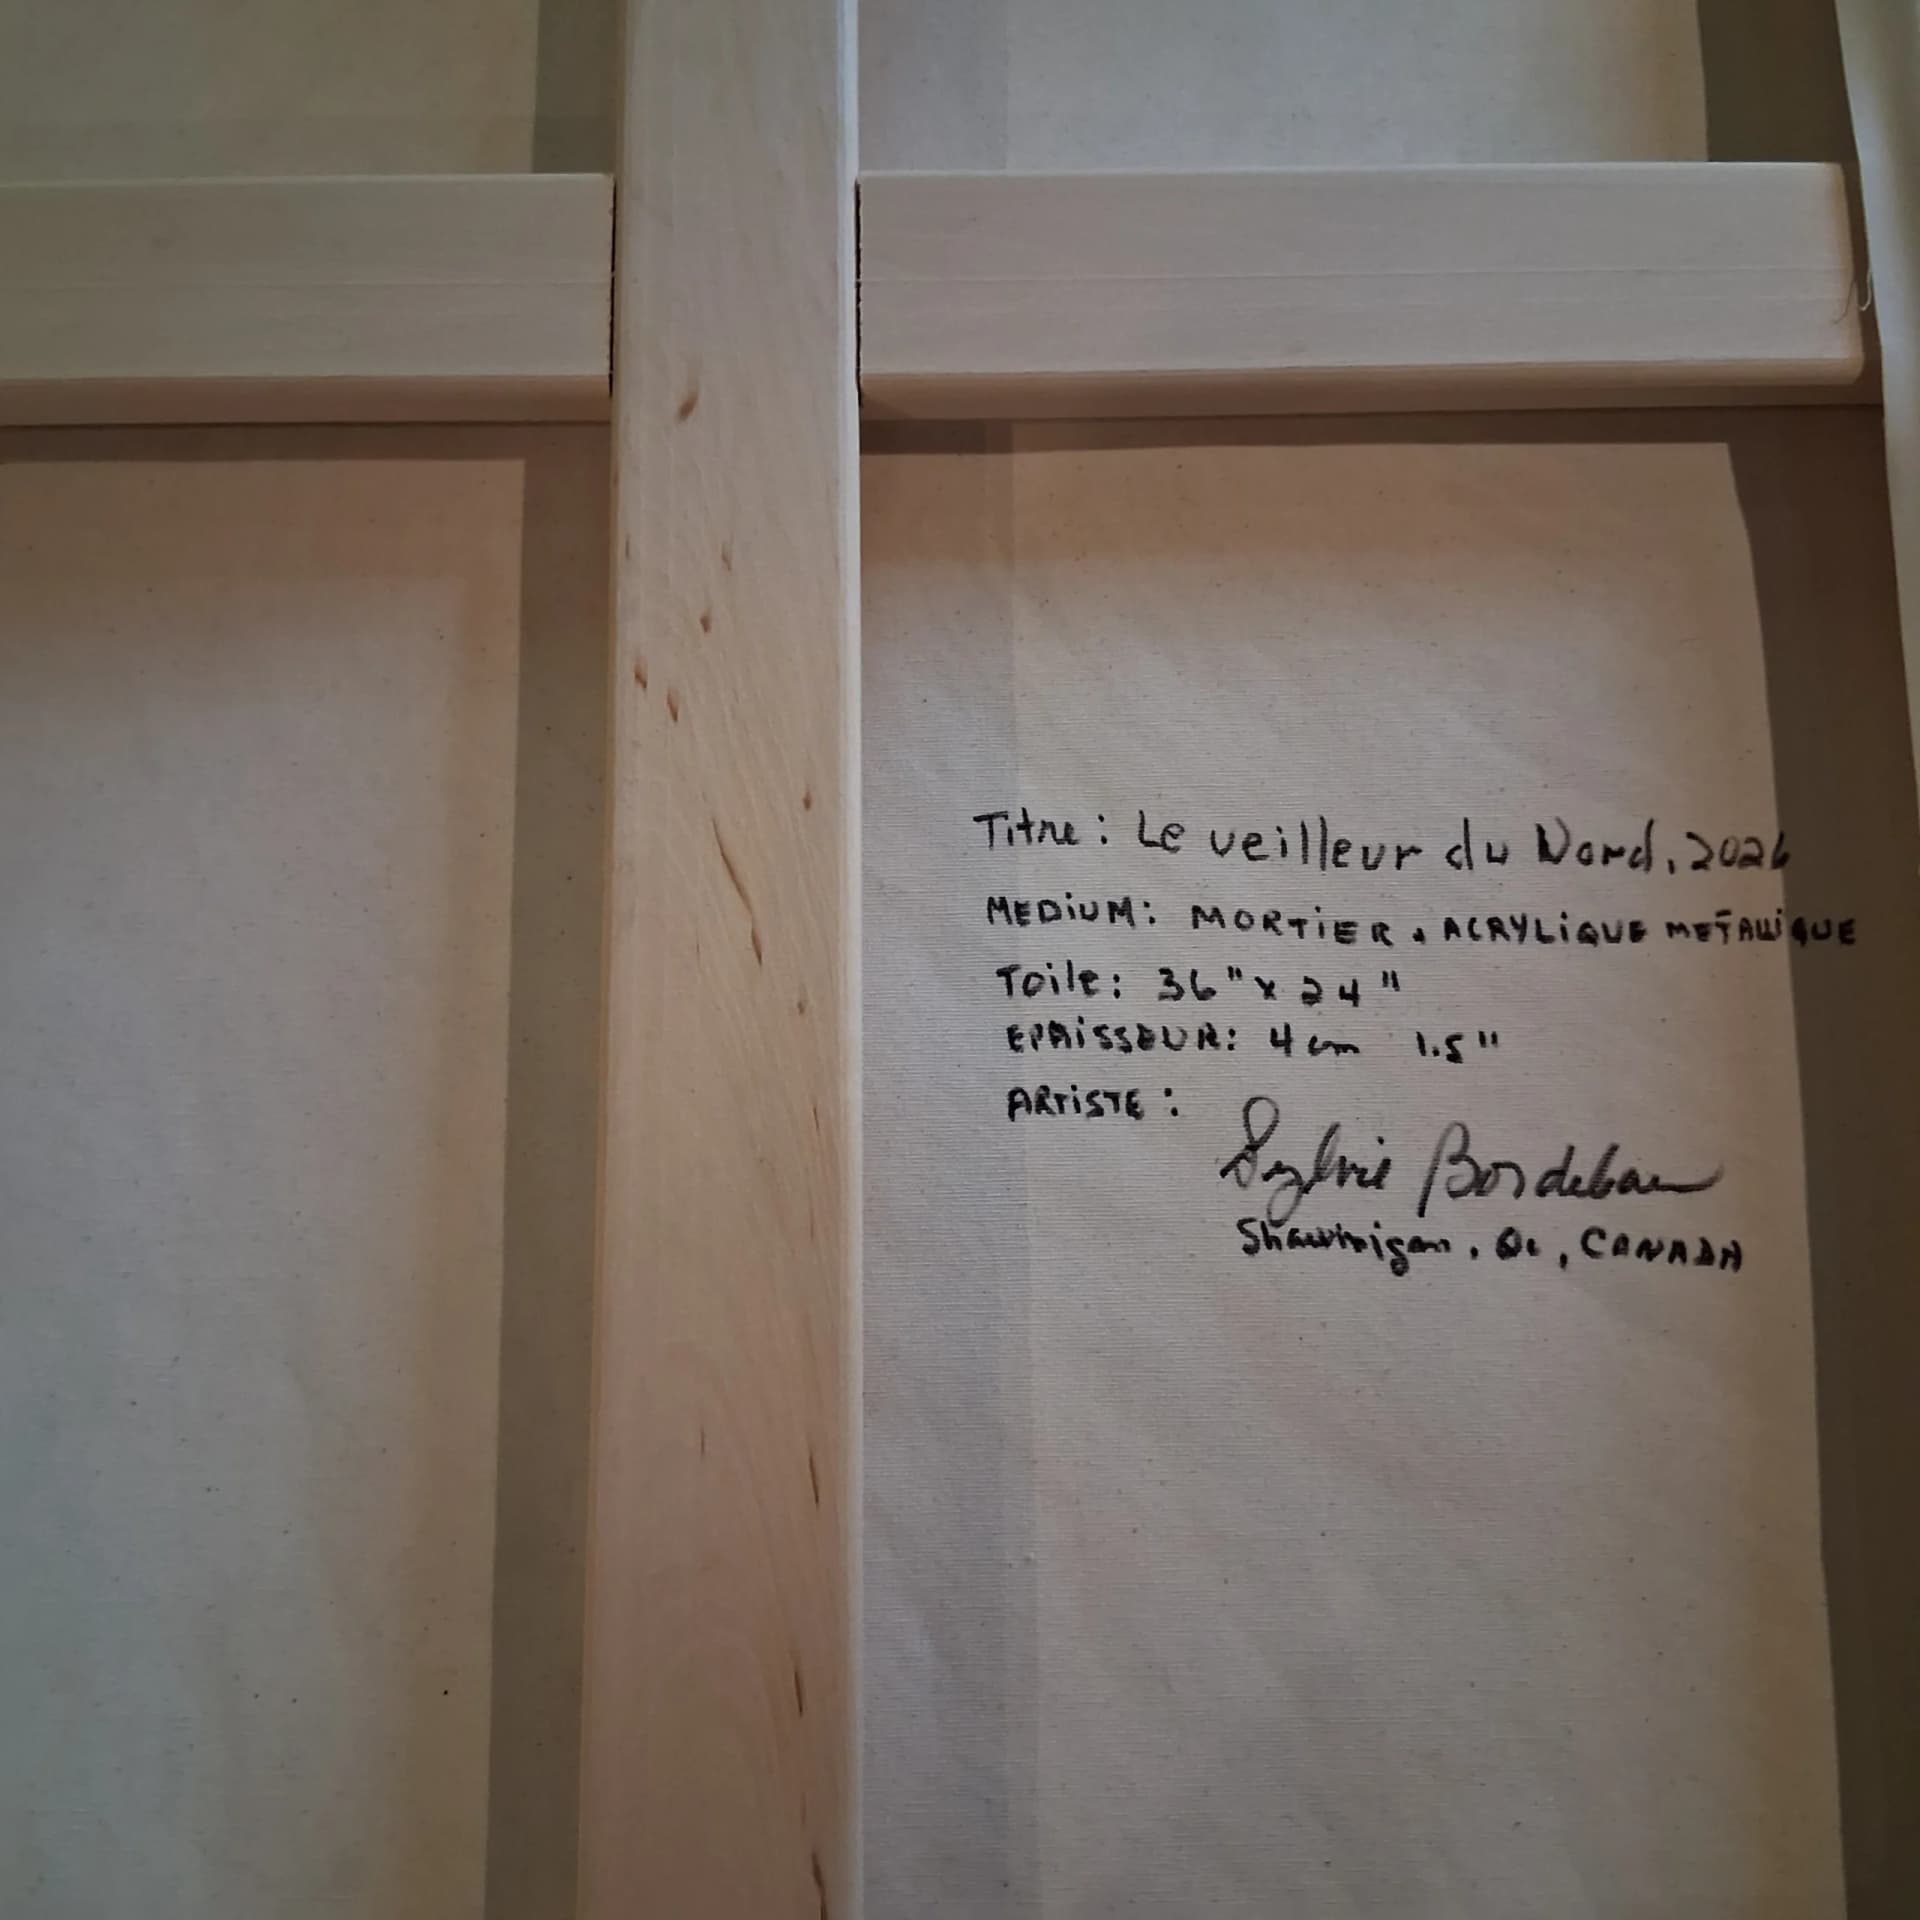 Titre: Le veilleur du Nord, 2026
MEDIUM: MORTIER, ACRYLIQUE METALLIQUE
Toile: 36" x 24"
EPAISSEUR: 4 cm 1.5"
ARTISTE:
Sylvie Bordeleau
Shawinigan, Qc, CANADA